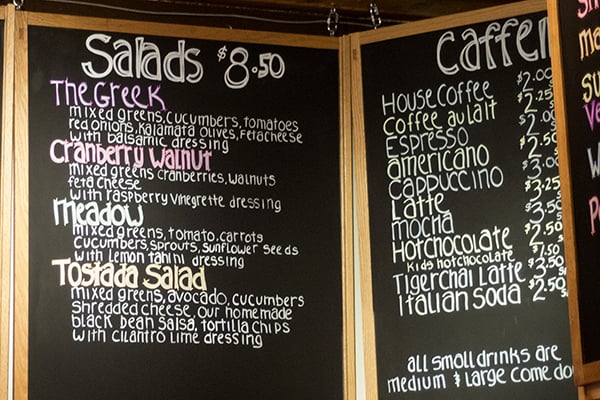 Salads $8.50
The Greek
mixed greens, cucumbers, tomatoes
red onions, Kalamata olives, Feta cheese
with balsamic dressing
Cranberry Walnut
mixed greens cranberries, walnuts
feta cheese
with raspberry vinegrette dressing
Meadow
mixed greens, tomato, carrots
cucumbers, sprouts, sunflower seeds
with lemon tahini dressing
Tostada Salad
mixed greens, avocado, cucumbers
shredded cheese, our homemade
black bean salsa, tortilla chips
with cilantro lime dressing
House Coffee $2.00
Coffee au lait $2.25
Espresso $2.00
americano $2.50
cappuccino $3.00
Latte $3.25
mocha $3.50
Hotchocolate $2.50
kids hotchocolate $1.50
Tigerchai Latte $3.50
Italian Soda $2.50
all small drinks are
medium & Large come